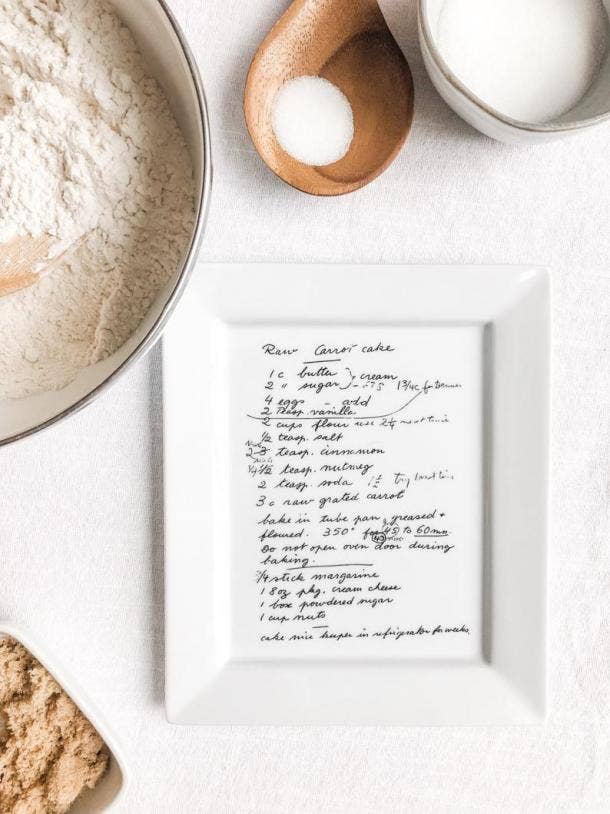 Raw Carrot cake
1 c butter } cream
2 " sugar 1 3/4 c for
4 eggs - add
2 Teasp. vanilla
2 cups flour use 2 1/4 next time
1/2 teasp. salt
2-3 teasp. cinnamon
1/4 1/2 teasp. nutmeg
2 teasp. soda 1 1/2 try
3 c raw grated carrot
bake in tube pan, greased +
floured. 350° for 45 to 60 min.
Do not open oven door during
baking.
3/4 stick margarine
1 8oz pkg. cream cheese
1 box powdered sugar
1 cup nuts
cake nice keeper in refrigerator for weeks.